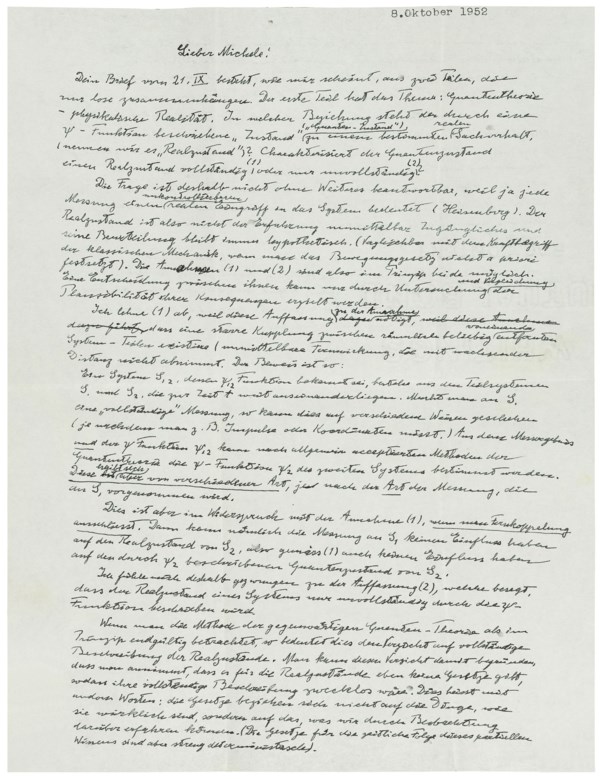 8.Oktober 1952
Lieber Michele!
Dein Brief vom 21. IX besteht, wie mir scheint, aus zwei Teilen, die
nur lose zusammenhängen. Der erste Teil hat das Thema: Quantentheorie
– physikalische Realität. In welcher Beziehung steht der durch eine
ψ-Funktion beschriebene „Zustand" („Quanten-Zustand") zu einem bestimmten realen Sachverhalt,
(nennen wir es „Realzustand")? Charakterisiert der Quantenzustand
einen Realzustand vollständig (1) oder nur unvollständig (2)?
Die Frage ist deshalb nicht ohne Weiteres beantwortbar, weil ja jede
Messung einen unkontrollierbaren realen Eingriff in das System bedeutet (Heisenberg). Der
Realzustand ist also nicht der Erfahrung unmittelbar Zugängliches und
seine Beurteilung bleibt immer hypothetisch. (Vergleichbar mit dem Kraftbegriff
der klassischen Mechanik, wenn man das Bewegungsgesetz nicht a priori
festsetzt). Die Annahmen (1) und (2) sind also im Prinzip beide möglich.
Eine Entscheidung zwischen ihnen kann nur durch Untersuchung und Vergleichung der
Plausibilität ihrer Konsequenzen erzielt werden.
Ich lehne (1) ab, weil diese Auffassung zu der Annahme nötigt,
dass eine starre Kupplung zwischen räumlich beliebig voneinander entfernten
System-Teilen existiere (unmittelbare Fernwirkung, die mit wachsender
Distanz nicht abnimmt). Der Beweis ist so:
Ein System S₁₂, dessen ψ₁₂ Funktion bekannt sei, bestehe aus den Teilsystemen
S₁ und S₂, die zur Zeit t weit auseinanderliegen. Macht man an S₁
eine „vollständige" Messung, so kann dies auf verschiedene Weisen geschehen
(je nachdem man z. B. Impulse oder Koordinaten misst). Aus dem Messergebnis
und der ψ Funktion ψ₁₂ kann nach allgemein acceptierten Methoden der
Quantentheorie die ψ-Funktion ψ₂ des zweiten Systems bestimmt werden.
Diese ist von verschiedener Art, je nach der Art der Messung, die
an S₁ vorgenommen wird.
Dies ist aber im Widerspruch mit der Annahme (1), wenn man Fernkoppelung
ausschliesst. Dann kann nämlich die Messung an S₁ keinen Einfluss haben
auf den Realzustand von S₂, also gemäss (1) auch keinen Einfluss haben
auf den durch ψ₂ beschriebenen Quantenzustand von S₂.
Ich fühle mich deshalb gezwungen zu der Auffassung (2), welche besagt,
dass der Realzustand eines Systems nur unvollständig durch die ψ-
Funktion beschrieben wird.
Wenn man die Methode der gegenwärtigen Quanten-Theorie als im
Prinzip endgültig betrachtet, so bedeutet dies den Verzicht auf vollständige
Beschreibung der Realzustände. Man kann diesen Verzicht damit begründen,
dass man annimmt, dass es für die Realzustände eben keine Gesetze gibt,
sodass ihre vollständige Beschreibung zwecklos wäre. Dies heisst mit
anderen Worten: die Gesetze beziehen sich nicht auf die Dinge, wie
sie wirklich sind, sondern auf das, was wir durch Beobachtung
darüber erfahren können. (Die Gesetze für die zeitliche Folge dieses partiellen
Wissens sind aber streng deterministisch).